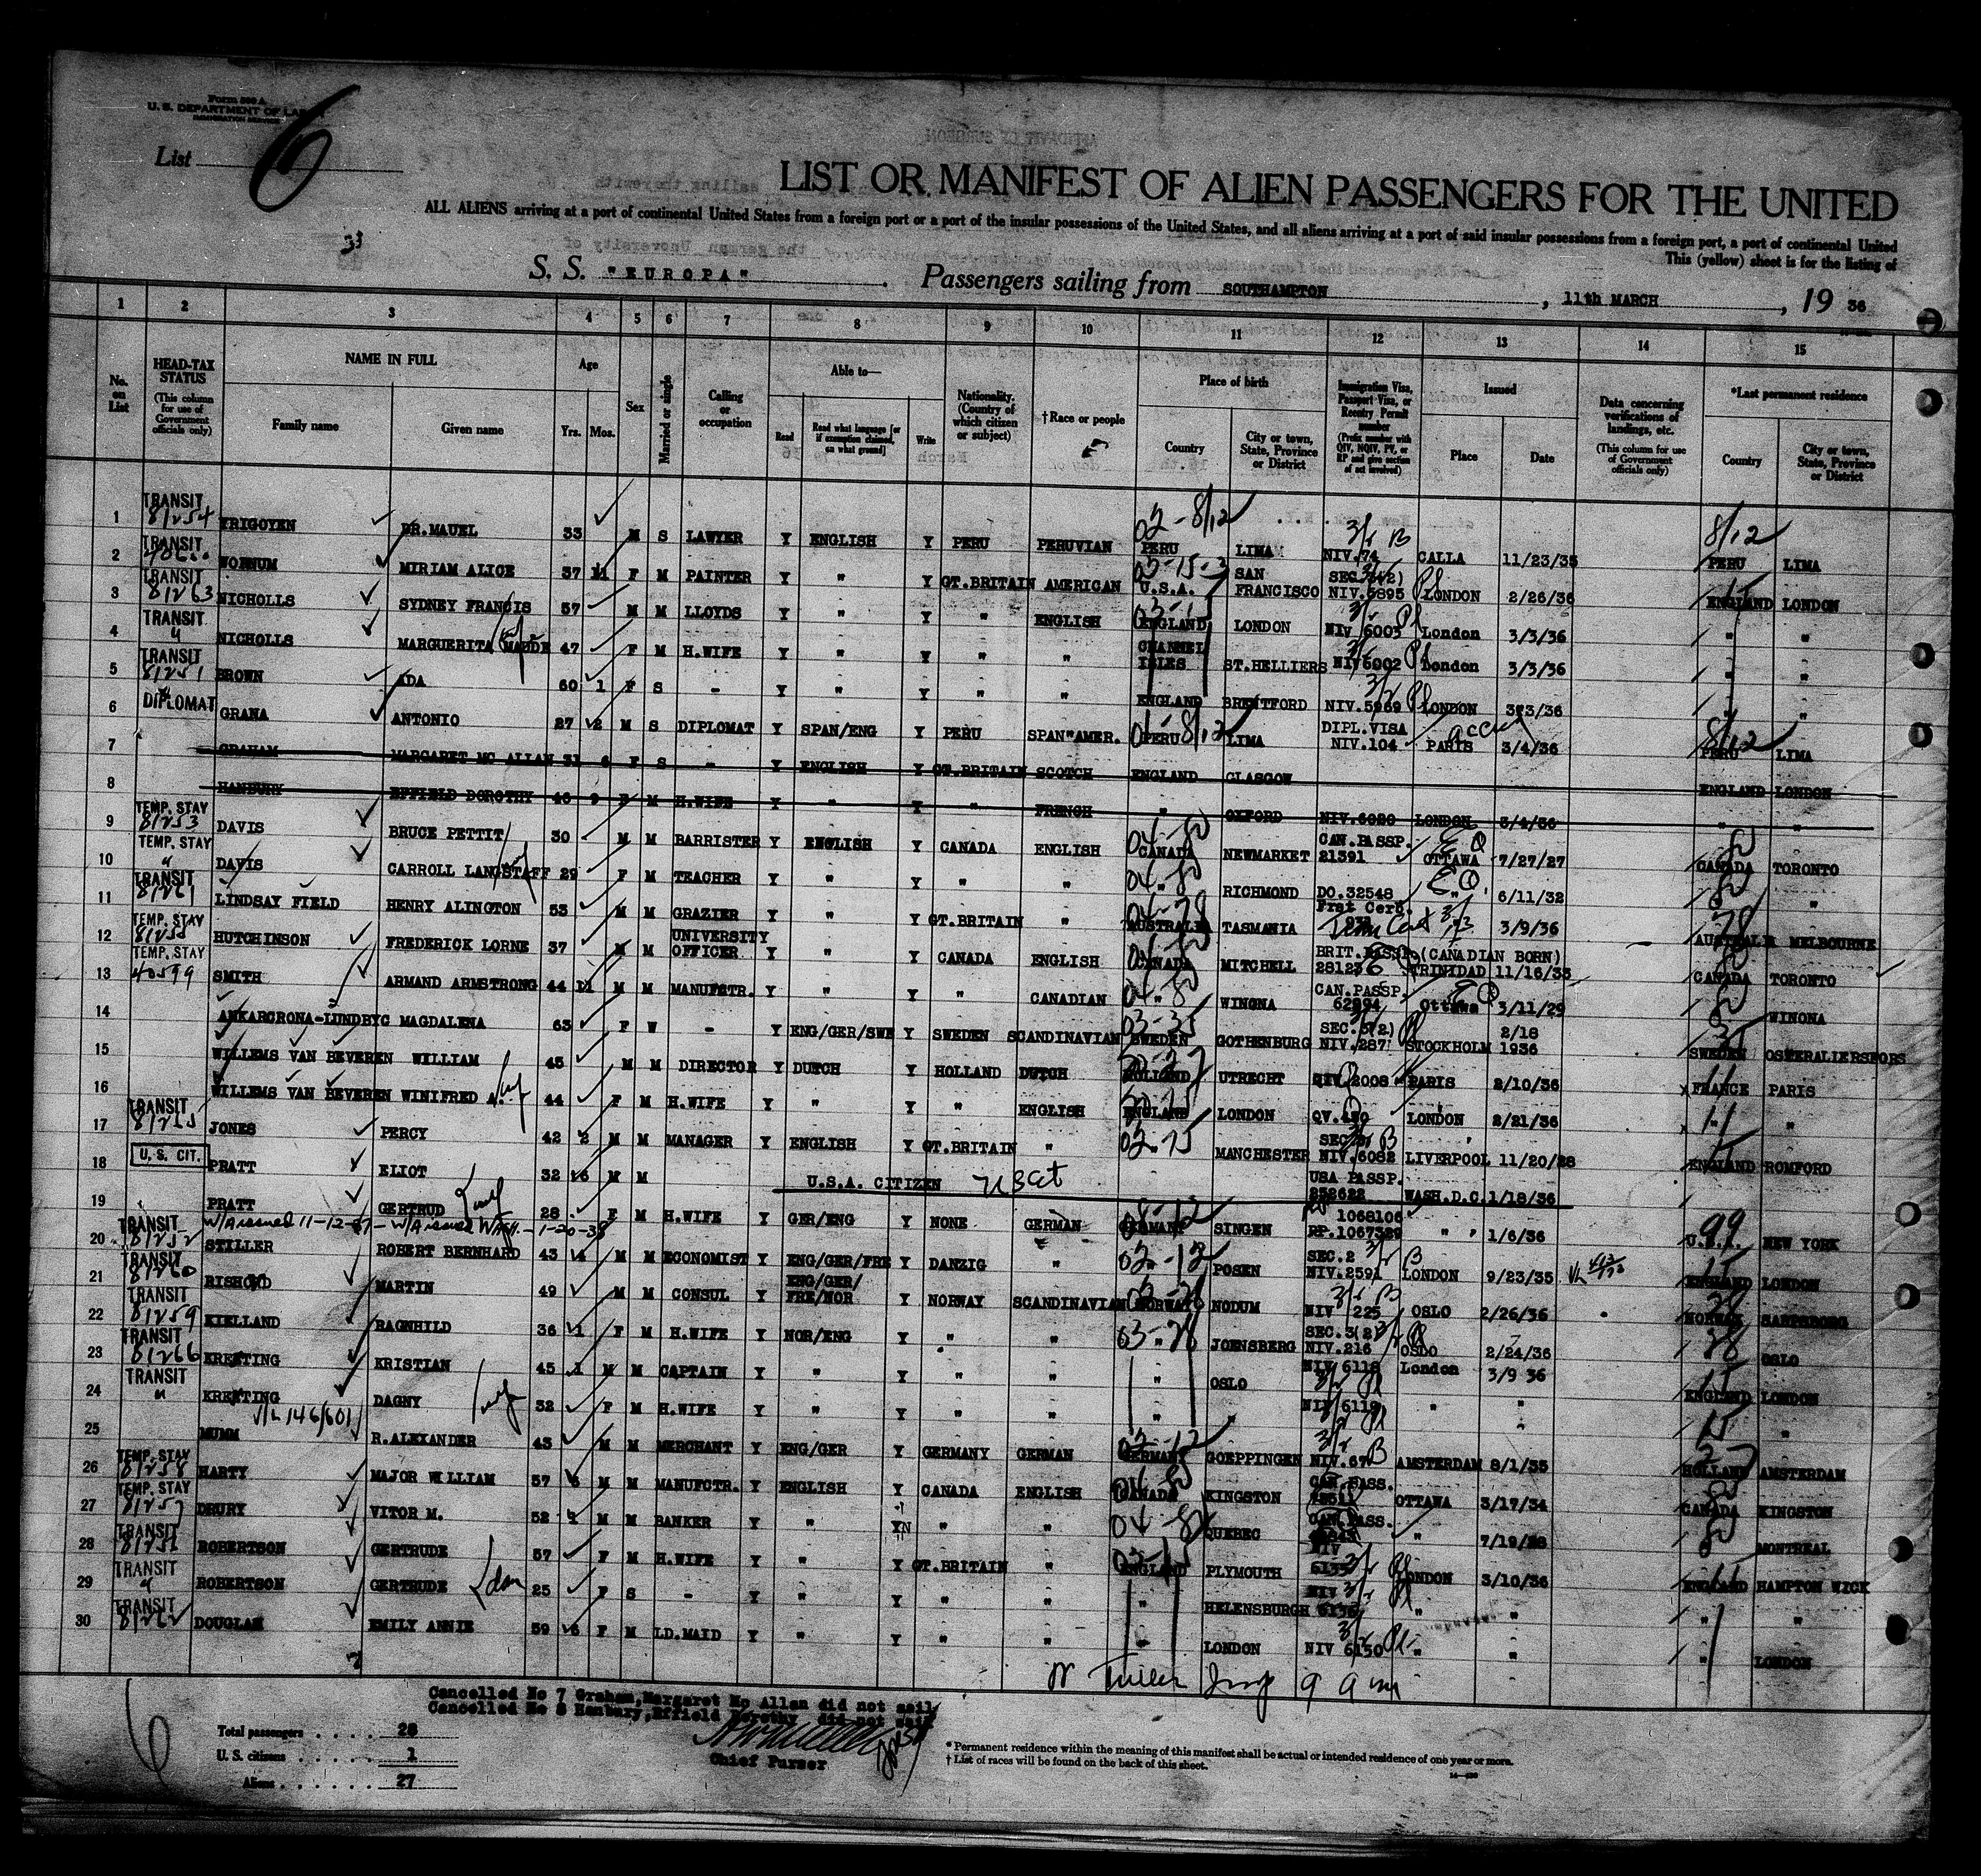 Form 500 A
U. S. DEPARTMENT OF LABOR
IMMIGRATION SERVICE
List 6
LIST OR MANIFEST OF ALIEN PASSENGERS FOR THE UNITED
ALL ALIENS arriving at a port of continental United States from a foreign port or a port of the insular possessions of the United States, and all aliens arriving at a port of said insular possessions from a foreign port, a port of continental United
This (yellow) sheet is for the listing of
33
S. S. "EUROPA" . Passengers sailing from SOUTHAMPTON , 11th MARCH , 19 36
1 2 3 4 5 6 7 8 9 10 11 12 13 14 15
No. on List
HEAD-TAX STATUS (This column for use of Government officials only)
NAME IN FULL Family name Given name
Age Yrs. Mos.
Sex
Married or single
Calling or occupation
Able to— Read Read what language [or if exemption claimed, on what ground] Write
Nationality. (Country of which citizen or subject)
†Race or people
Place of birth Country City or town, State, Province or District
Immigration Visa, Passport Visa, or Reentry Permit number (Prefix number with QIV, NQIV, PV, or RP and give section of act involved)
Issued Place Date
Data concerning verifications of landings, etc. (This column for use of Government officials only)
*Last permanent residence Country City or town, State, Province or District
1 TRANSIT 81254 YRIGOYEN DR.MAUEL 33 M S LAWYER Y ENGLISH Y PERU PERUVIAN 02-8/12 PERU LIMA NIV.74 CALLA 11/23/35 8/12 PERU LIMA
2 TRANSIT WORNUM MIRIAM ALICE 37 11 F M PAINTER Y " Y GT.BRITAIN AMERICAN U.S.A. SAN FRANCISCO SEC.3(2) NIV.5895 LONDON 2/26/36 ENGLAND LONDON
3 TRANSIT 81263 NICHOLLS SYDNEY FRANCIS 57 M M LLOYDS Y " Y " ENGLISH ENGLAND LONDON NIV 6003 London 3/3/36 " "
4 TRANSIT " NICHOLLS MARGUERITA MAUDE 47 F M H.WIFE Y " Y " " CHANNEL ISLES ST.HELLIERS NIV 6002 London 3/3/36 " "
5 TRANSIT 81251 BROWN ADA 60 1 F S - Y " Y " " ENGLAND BRENTFORD NIV.5969 LONDON 3/3/36 " "
6 DIPLOMAT GRANA ANTONIO 27 2 M S DIPLOMAT Y SPAN/ENG Y PERU SPAN"AMER. PERU 8/12 LIMA DIPL.VISA NIV.104 PARIS 3/4/36 8/12 PERU LIMA
7 GRAHAM MARGARET MC ALLAN 31 6 F S - Y ENGLISH Y GT.BRITAIN SCOTCH ENGLAND GLASGOW ENGLAND LONDON
8 HANBURY EFFIELD DOROTHY 46 9 F M H.WIFE Y " Y " FRENCH " OXFORD NIV.6020 LONDON 3/4/36 " "
9 TEMP. STAY 81253 DAVIS BRUCE PETTIT 30 M M BARRISTER Y ENGLISH Y CANADA ENGLISH 04-80 CANADA NEWMARKET CAN.PASSP. 21391 OTTAWA 7/27/27 CANADA TORONTO
10 TEMP. STAY " DAVIS CARROLL LANGSTAFF 29 F M TEACHER Y " Y " " 04-80 RICHMOND DO.32548 " 6/11/32 " "
11 TRANSIT 81261 LINDSAY FIELD HENRY ALINGTON 53 M M GRAZIER Y " Y GT.BRITAIN " 04-78 AUSTRALIA TASMANIA 3/9/36 78 AUSTRALIA MELBOURNE
12 TEMP. STAY HUTCHINSON FREDERICK LORNE 37 M M UNIVERSITY OFFICER Y " Y CANADA ENGLISH CANADA MITCHELL BRIT.PASSP. (CANADIAN BORN) 281236 TRINIDAD 11/16/33 CANADA TORONTO
13 TEMP. STAY 40599 SMITH ARMAND ARMSTRONG 44 11 M M MANUFCTR. Y " Y " CANADIAN 04-80 " WINONA CAN.PASSP. 62994 Ottawa 3/11/29 " WINONA
14 ANKARCRONA-LUNDBYG MAGDALENA 63 F W - Y ENG/GER/SWE Y SWEDEN SCANDINAVIAN 03-35 SWEDEN GOTHENBURG SEC.3(2) NIV.287 STOCKHOLM 2/18 1936 35 SWEDEN OSTERALJERSFORS
15 WILLEMS VAN BEVEREN WILLIAM 45 M M DIRECTOR Y DUTCH Y HOLLAND DUTCH HOLLAND UTRECHT QIV.2008 PARIS 2/10/36 FRANCE PARIS
16 WILLEMS VAN BEVEREN WINIFRED A. wf 44 F M H.WIFE Y " Y " ENGLISH ENGLAND LONDON LONDON 2/21/36 " "
17 TRANSIT JONES PERCY 42 2 M M MANAGER Y ENGLISH Y GT.BRITAIN " 02-15 " MANCHESTER NIV.6082 LIVERPOOL 11/20/28 ENGLAND ROMFORD
18 U. S. CIT. PRATT ELIOT 32 6 M M U.S.A. CITIZEN USCit USA PASSP. 258622 WASH.D.C. 1/18/36
19 PRATT GERTRUD wf 28 F M H.WIFE Y GER/ENG Y NONE GERMAN GERMANY SINGEN 1068106 RP.1067329 " " 1/6/36 99 U.S.A. NEW YORK
W/A issued 11-12-37 - W/A issued Wash. - 1-20-38
20 TRANSIT 81252 STILLER ROBERT BERNHARD 43 4 M M ECONOMIST Y ENG/GER/FRE Y DANZIG " 02-12 POSEN SEC.2 NIV.2591 LONDON 9/23/35 ENGLAND LONDON
21 TRANSIT 81260 MARTIN 49 M M CONSUL Y ENG/GER/ FRE/NOR Y NORWAY SCANDINAVIAN NORWAY NODUM NIV 225 OSLO 2/26/36 28 NORWAY SARPSBORG
22 TRANSIT 81259 KIELLAND RAGNHILD 36 1 F M H.WIFE Y NOR/ENG Y " " 03-28 " JOENSBERG SEC.3(2) NIV.216 OSLO 2/24/36 28 OSLO
23 TRANSIT 81266 KREFTING KRISTIAN 45 1 M M CAPTAIN Y " Y " " " OSLO NIV 6118 London 3/9 36 ENGLAND LONDON
24 TRANSIT " KREFTING DAGNY wf 32 F M H.WIFE Y " Y " " " NIV 6119 " " " "
V/L 146/601
25 MUMM R.ALEXANDER 43 M M MERCHANT Y ENG/GER Y GERMANY GERMAN 02-12 GERMANY GOEPPINGEN NIV.67 B AMSTERDAM 8/1/35 HOLLAND AMSTERDAM
26 TEMP. STAY 81258 HARTY MAJOR WILLIAM 57 M M MANUFCTR. Y ENGLISH Y CANADA ENGLISH CANADA KINGSTON CAN.PASS. OTTAWA 3/17/34 CANADA KINGSTON
27 TEMP. STAY 81257 DRURY VITOR M. 52 M M BANKER Y " " " 04-80 QUEBEC CAN.PASS. " 7/19/28 MONTREAL
28 TRANSIT ROBERTSON GERTRUDE 57 F M H.WIFE Y " Y GT.BRITAIN " ENGLAND PLYMOUTH NIV LONDON 3/10/36 ENGLAND HAMPTON WICK
29 TRANSIT " ROBERTSON GERTRUDE dau 25 F S - Y " Y " " " HELENSBURGH NIV 6136 " " " "
30 TRANSIT 81262 DOUGLAS EMILY ANNIE 59 6 F M LD.MAID Y " Y " " " LONDON NIV 6150 " " " LONDON
Cancelled No 7 Graham,Margaret Mc Allan did not sail
Cancelled No 8 Hanbury,Effield Dorothy did not sail
Chief Purser
6
Total passengers . . . . 28
U. S. citizens . . . . . 1
Aliens . . . . . . 27
* Permanent residence within the meaning of this manifest shall be actual or intended residence of one year or more.
† List of races will be found on the back of this sheet.